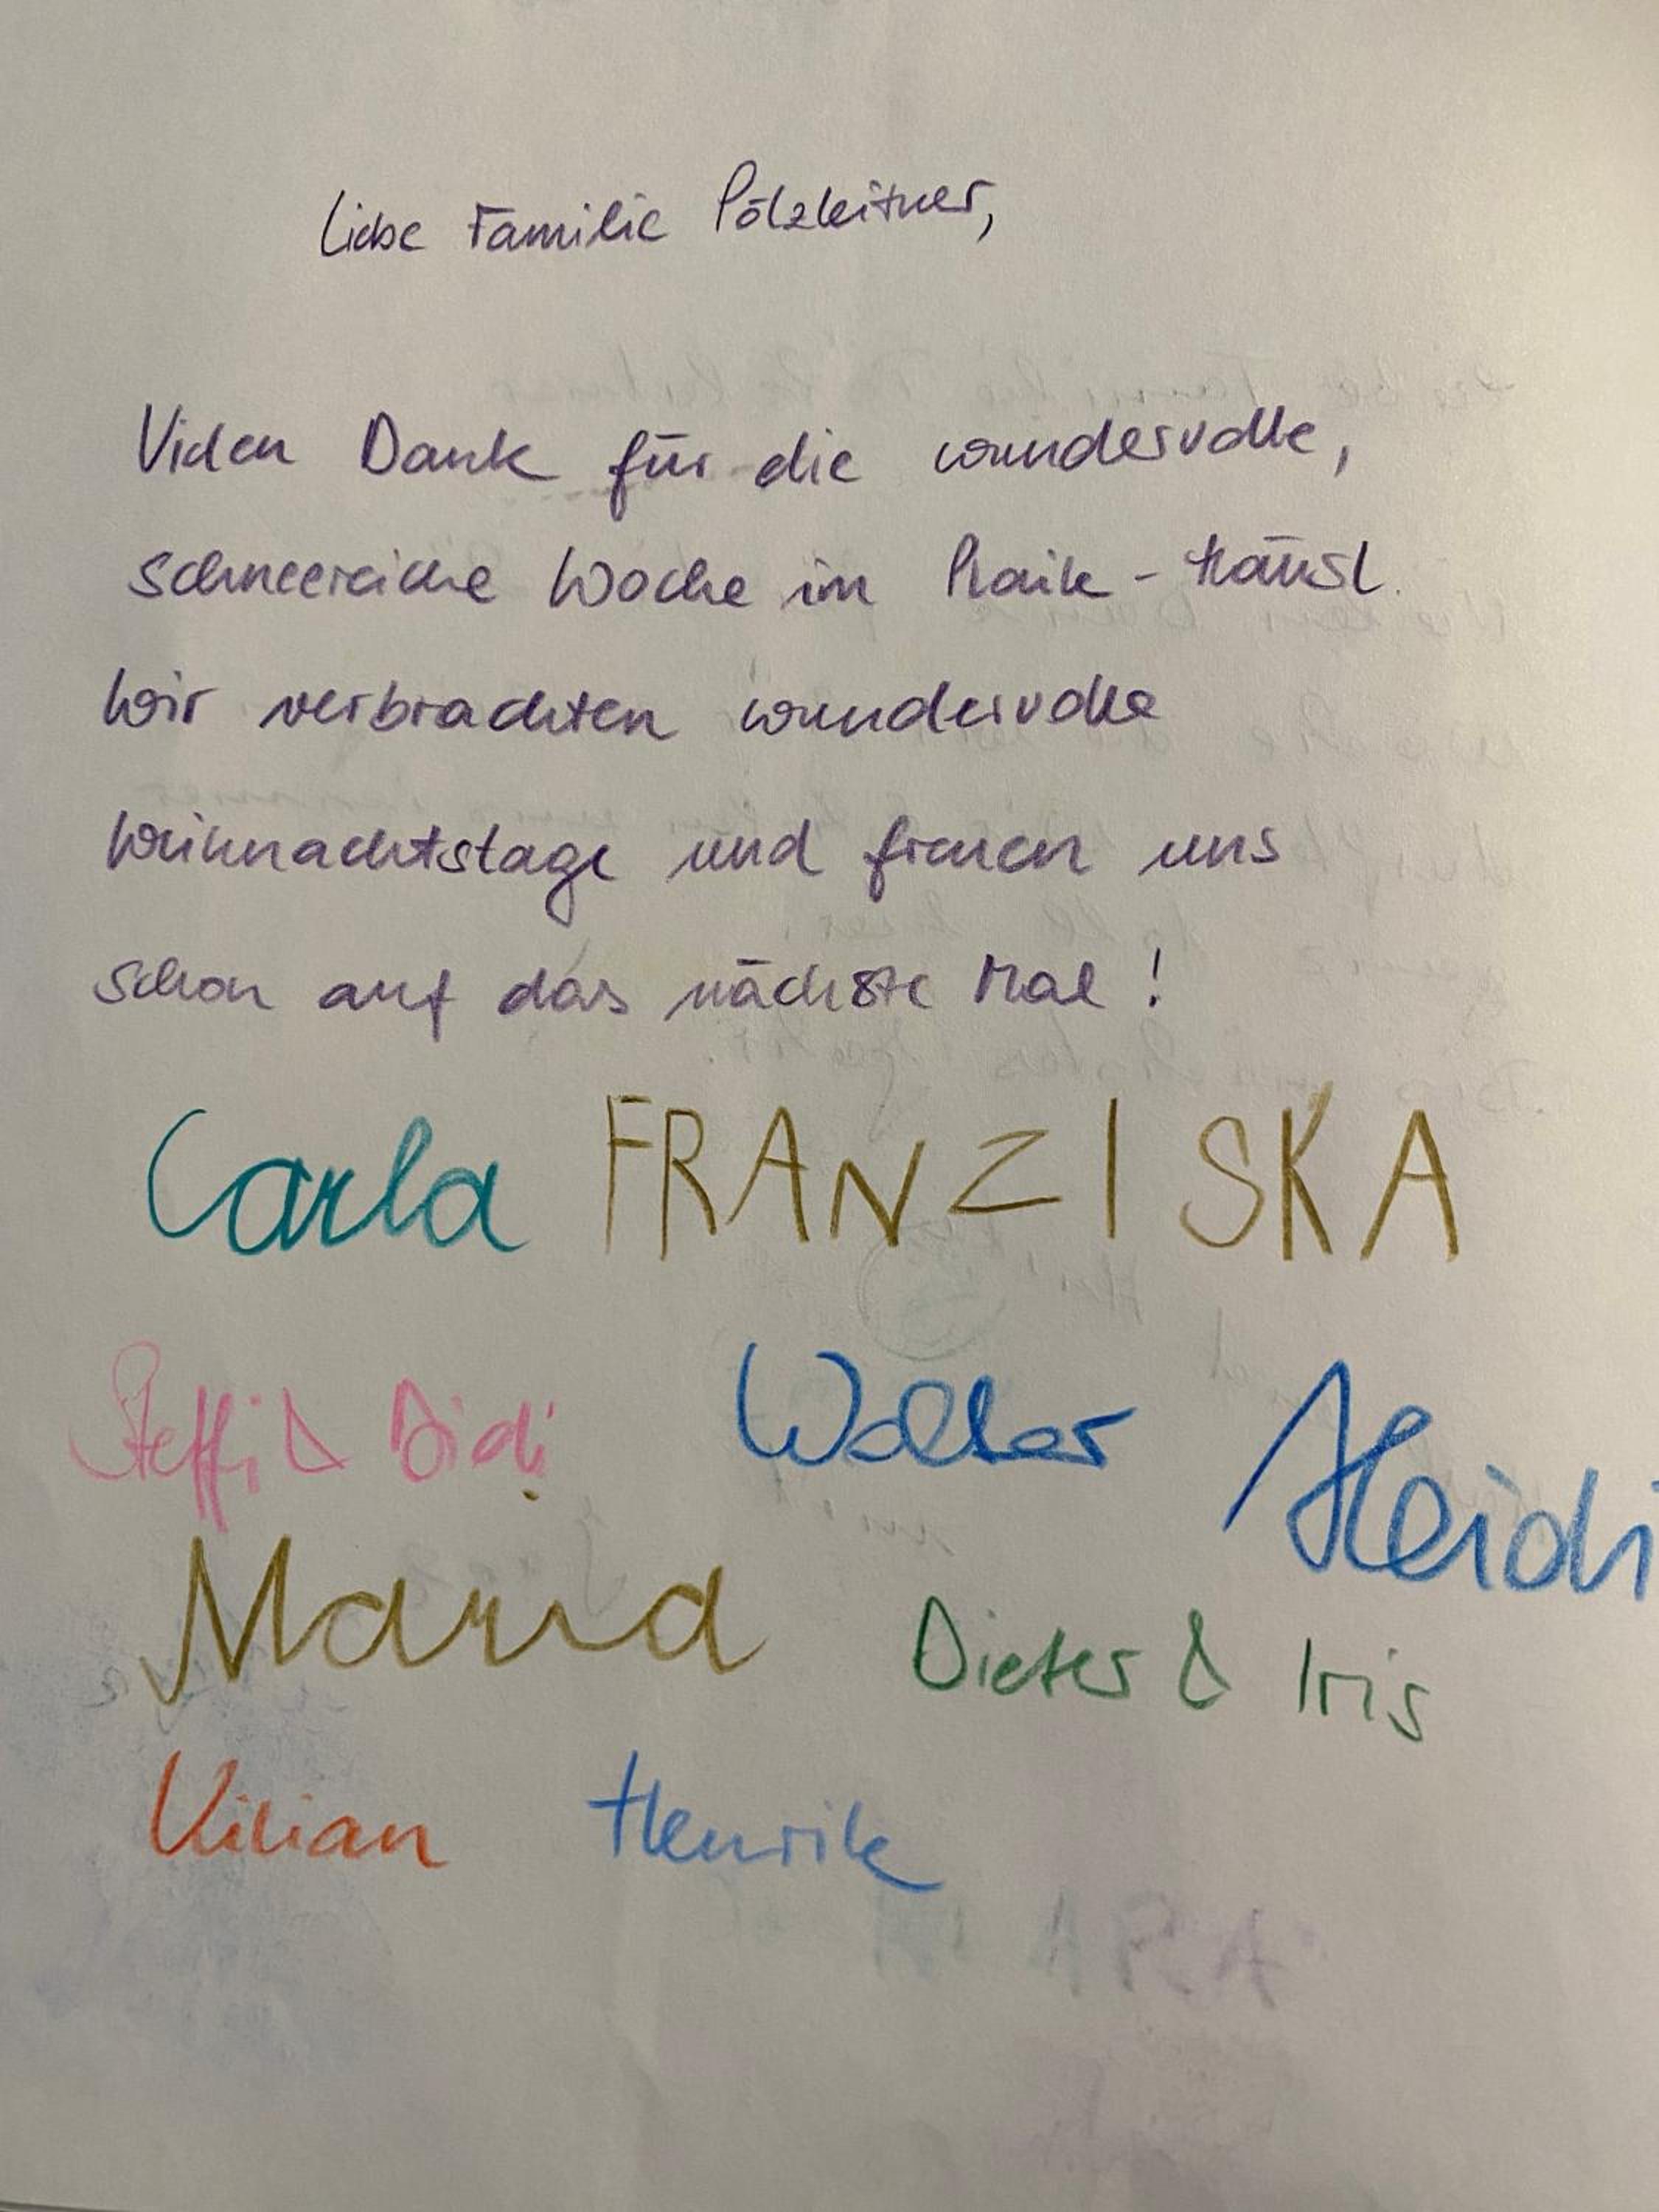 Liebe Familie Pölzleitner,
Vielen Dank für die wundervolle,
schneereiche Woche im Plaik-Häusl.
Wir verbrachten wundervolle
Weihnachtstage und freuen uns
schon auf das nächste Mal!
Carla FRANZISKA
Steffi & Didi Walter Heidi
Maria Dieter & Iris
Kilian Henrik